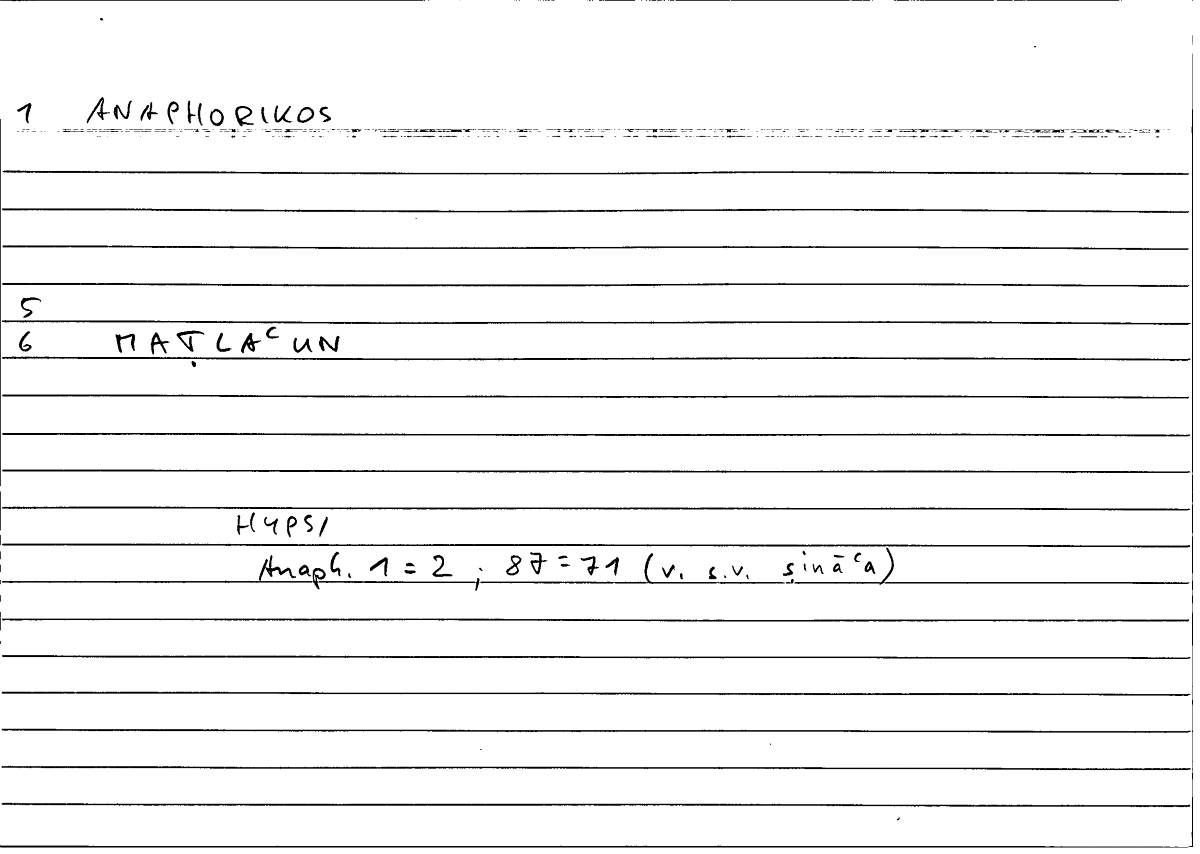 1 ANAPHORIKOS
5
6 MAṬLAʿUN
Hypsi
Anaph. 1 = 2 ; 87 = 71 (v. s.v. ṣināʿa)